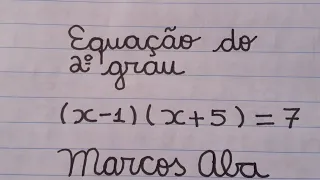 Equação do
2º grau
(x-1)(x+5) = 7
Marcos Aba